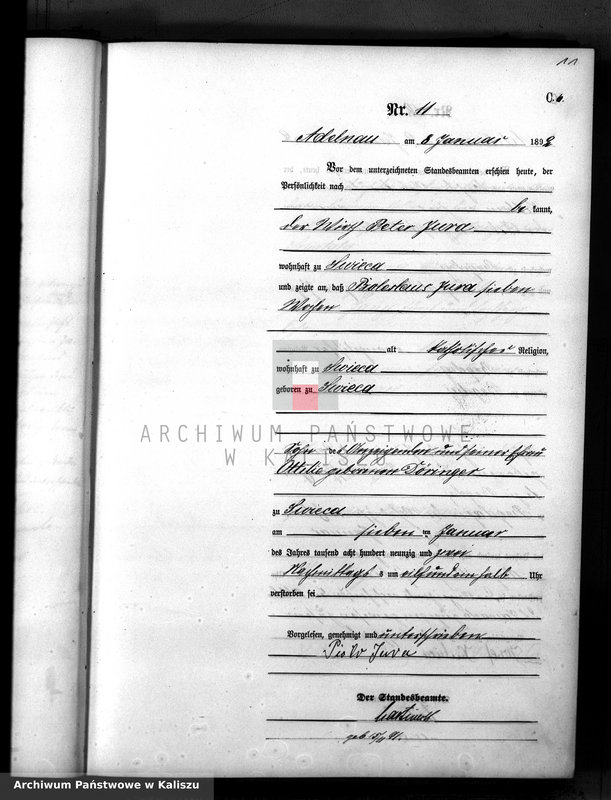 11
C.
Nr. 11
Adelnau am 8 Januar 1892
Vor dem unterzeichneten Standesbeamten erschien heute, der
Persönlichkeit nach
be kannt,
der Wirth Peter Jura
wohnhaft zu Swieca
und zeigte an, daß Boleslaus Jura sieben
Wochen
alt katholischer Religion,
wohnhaft zu Swieca
geboren zu Swieca
ARCHIWUM PAŃSTWOWE
W KALISZU
Sohn des Anzeigenden und seiner Ehefrau
Ottilie geborenen Döringer
zu Swieca
am sieben ten Januar
des Jahres tausend acht hundert neunzig und zwei
Nachmittags um eilfundeinhalb Uhr
verstorben sei
Vorgelesen, genehmigt und unterschrieben
Piotr Jura
Der Standesbeamte.
Archiwum Państwowe w Kaliszu